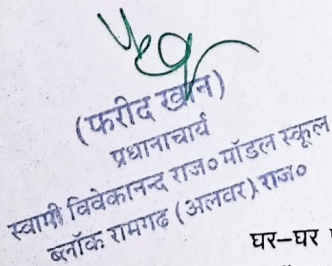 (फरीद खान)
प्रधानाचार्य
स्वामी विवेकानन्द राज० मॉडल स्कूल
ब्लॉक रामगढ (अलवर) राज०
घर-घर